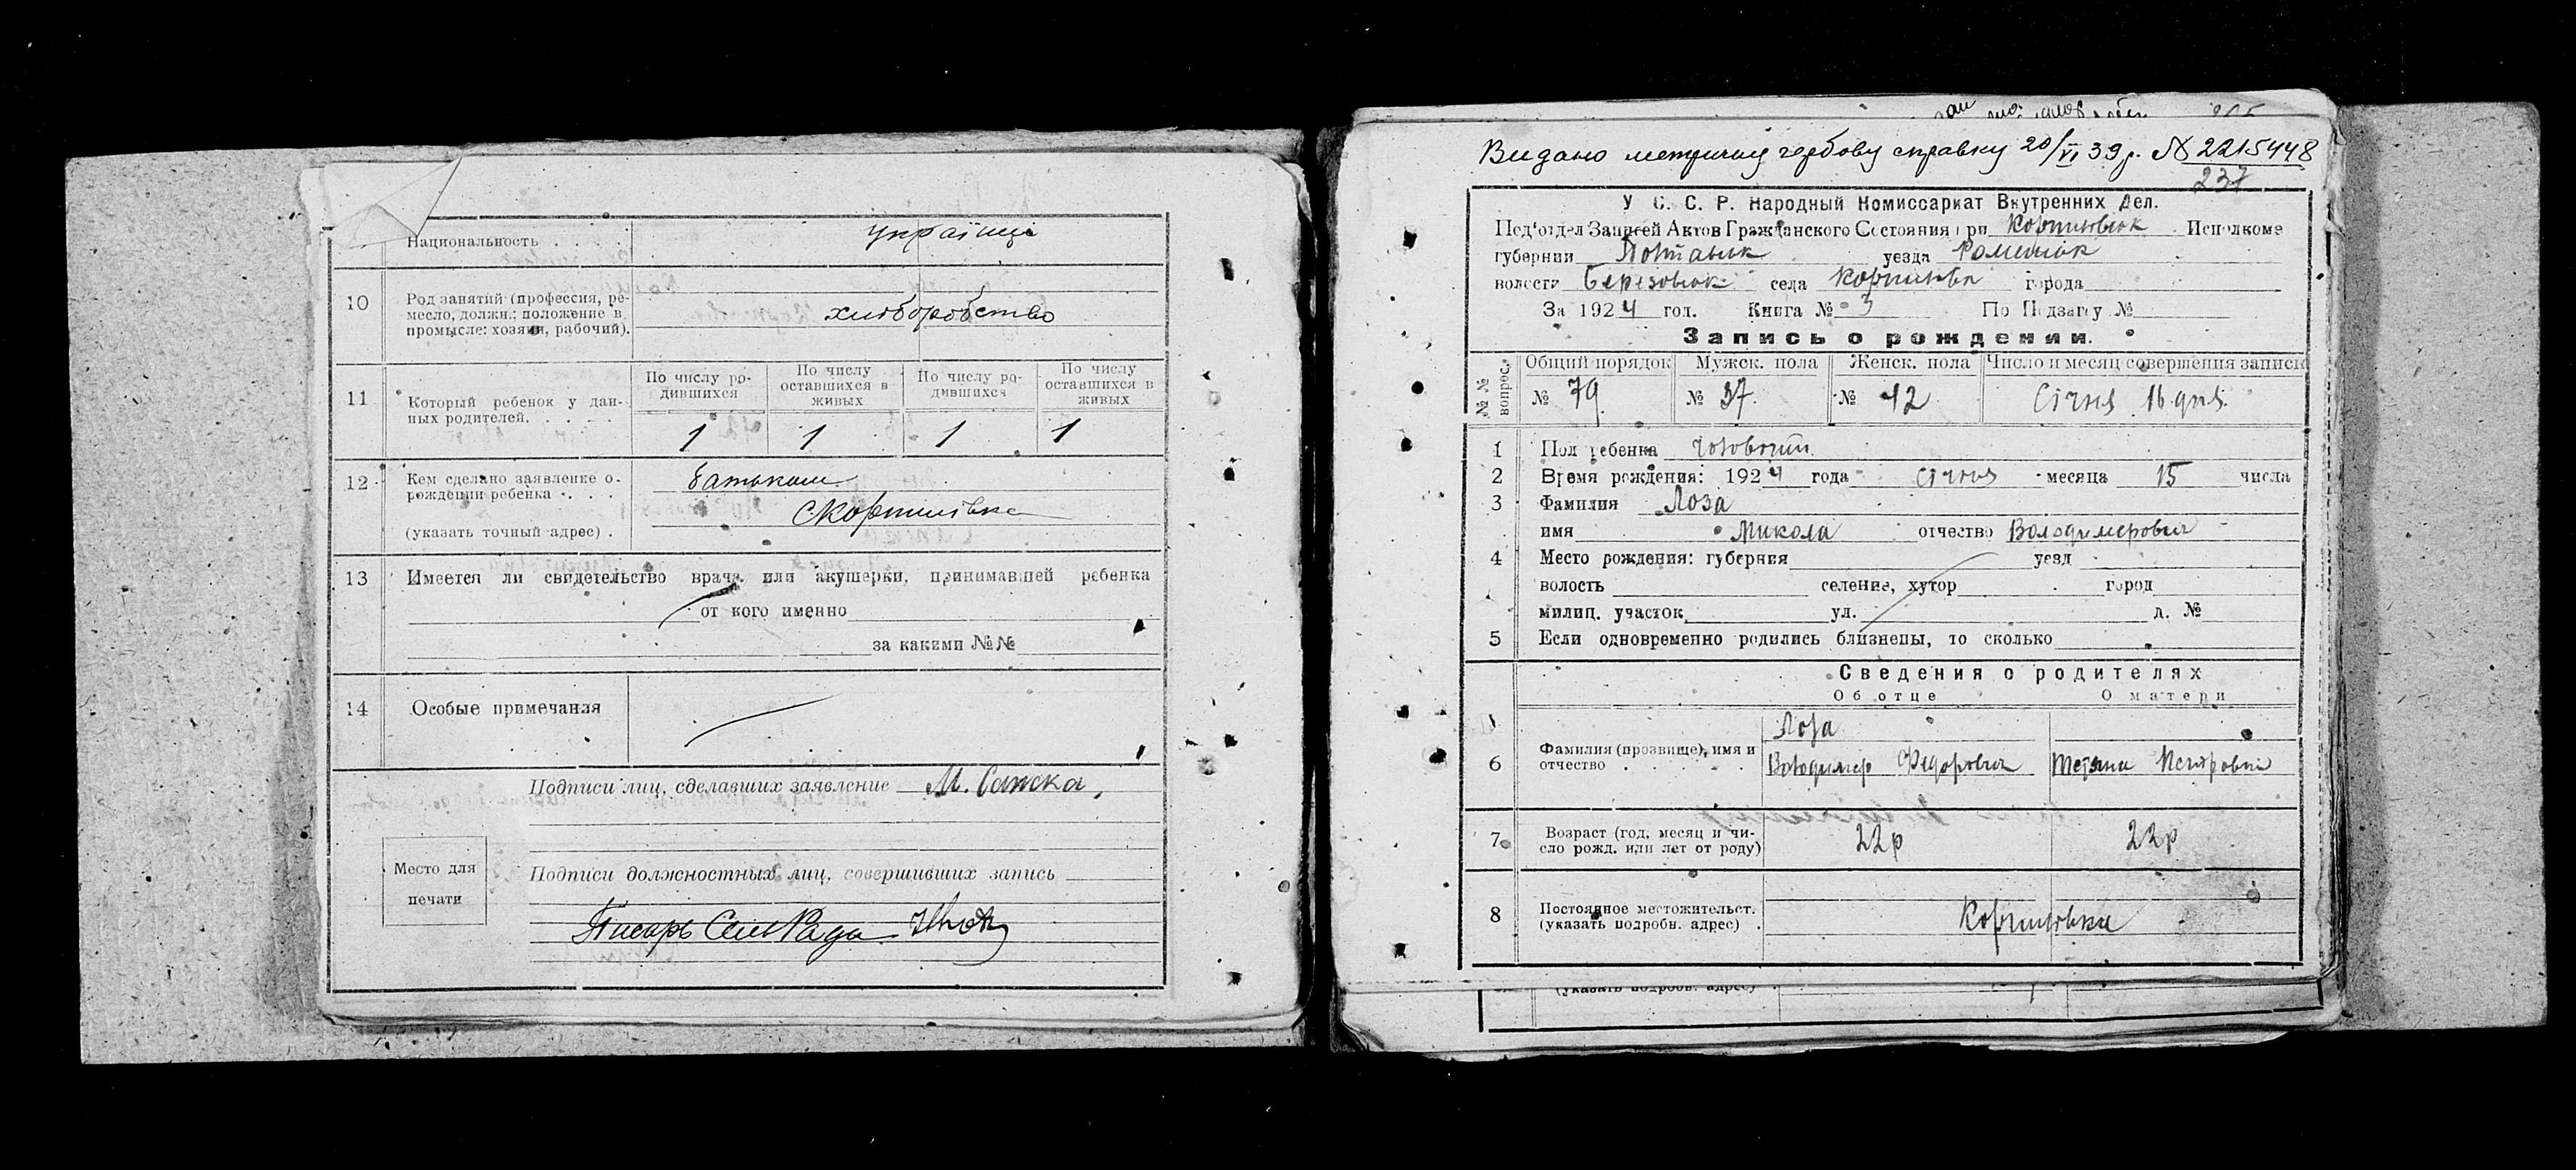 Национальность . . . . українці
10 Род занятий (профессия, ре-
месло, должн.; положение в
промысле: хозяин, рабочий). хліборобство
11 Который ребенок у дан-
ных родителей. . . . .
По числу ро-
дившихся
По числу
оставшихся в
живых
По числу ро-
дившихся
По числу
оставшихся в
живых
1 1 1 1
12 Кем сделано заявление о
рождении ребенка . . . . батьком
(указать точный адрес) . С Коржинівка
13 Имеется ли свидетельство врача или акушерки, принимавшей ребенка
от кого именно
за какими №№
14 Особые примечания
Подписи лиц, сделавших заявление М.
Место для
печати
Подписи должностных лиц, совершивших запись
Писарь СельРади
Видано метричну гербову справку 20/VI 39 р. № 2215448
237
У. С. С. Р. Народный Комиссариат Внутренних Дел.
Под'отдел Записей Актов Гражданского Состояния при Исполкоме
губернии Полтавськ уезда Роменськ
волости Березовськ села Коржинівка города
За 1924 год. Книга № 3 По Подзагу №
Запись о рождении.
№№ вопрос.
Общий порядок Мужск. пола Женск. пола Число и месяц совершения записи
№ 79 № 37 № 42 Січня 16 дня.
1 Пол ребенка Чоловічий
2 Время рождения: 1924 года січня месяца 15 числа
3 Фамилия Лоза
имя Микола отчество Володимерович
4 Место рождения: губерния уезд
волость селение, хутор город
милиц. участок ул. д. №
5 Если одновременно родились близнецы, то сколько
Сведения о родителях
Об отце О матери
Лоза
6 Фамилия (прозвище), имя и
отчество . . . . Володимер Федорович Тетяна Петровна
7 Возраст (год, месяц и чи-
сло рожд. или лет от роду) 22р 22р
8 Постоянное местожительст.
(указать подробн. адрес) . Коржинівка
(указать подробн. адрес) .